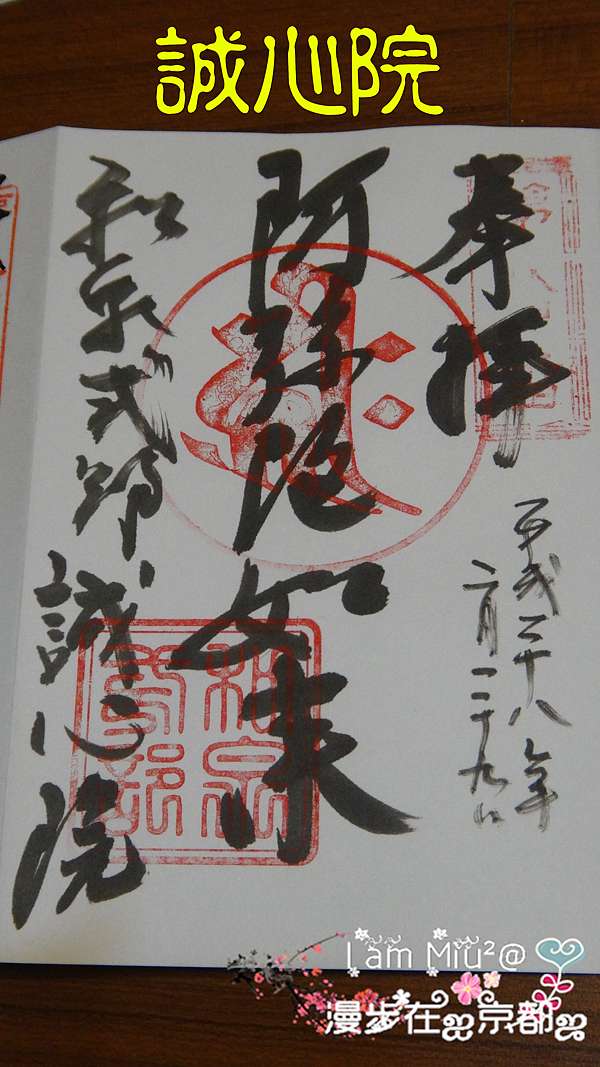 誠心院
奉拝
平成二十八年
二月二十九日
阿弥陀如来
和泉式部
誠心院
和泉
式部
I am Miu²@
漫步在京都